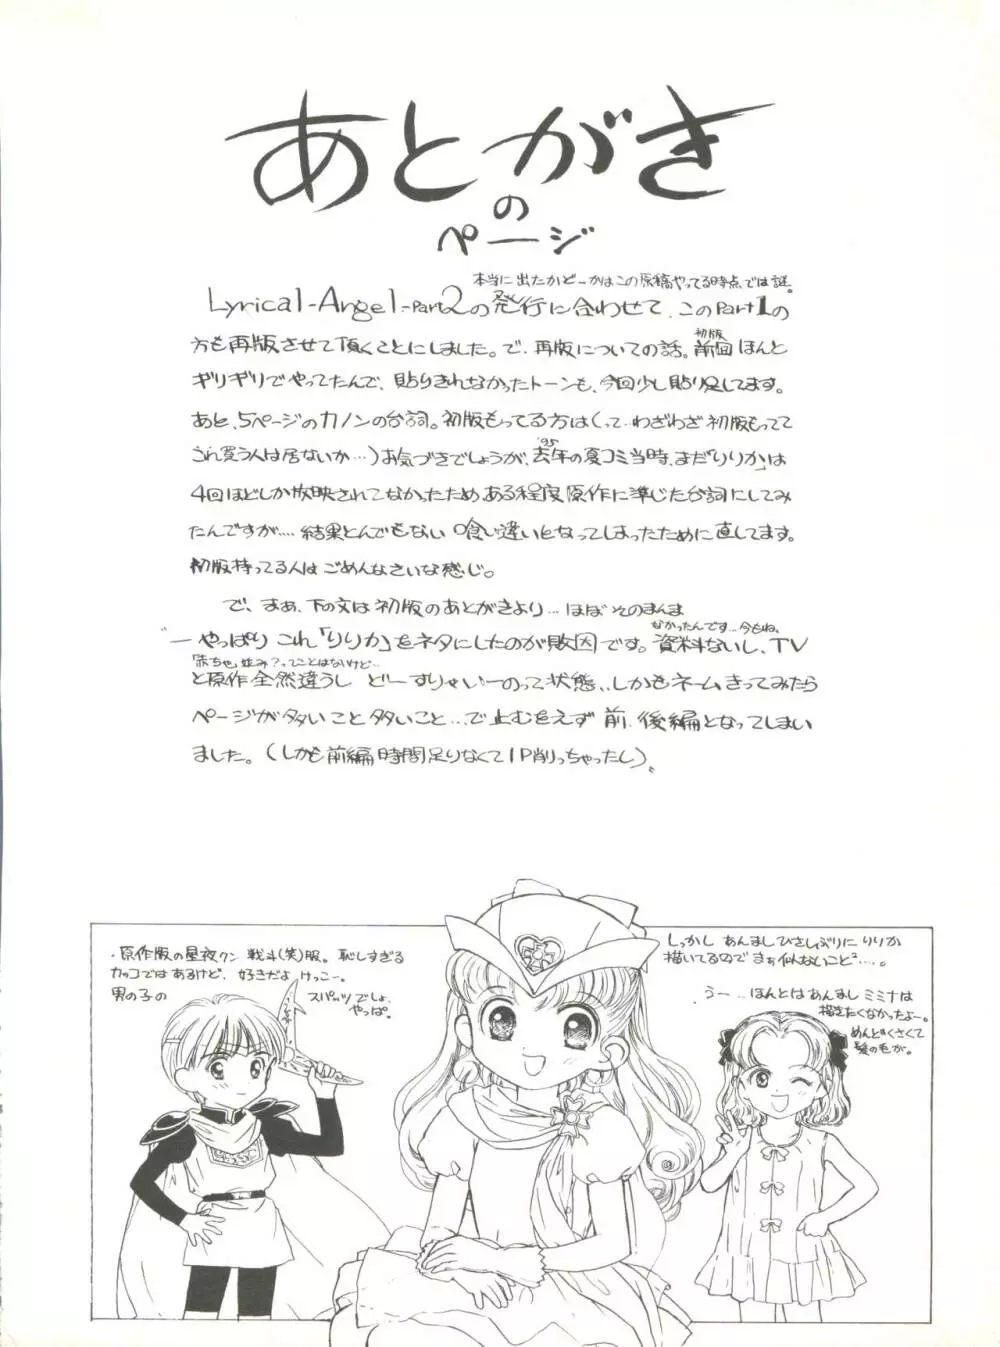 あとがき
の
ページ
本当に出たかどーかはこの原稿やってる時点では謎。
Lyrical-Angel-Part2の発行に合わせて、このPart1の
方も再版させて頂くことにしました。で、再版についての話。前回ほんと
初版
ギリギリでやってたんで、貼りきれなかったトーンも、今回少し貼り足してます。
あと、5ページのカノンの台詞。初版もってる方は(って…わざわざ初版もってて
これ買う人は居ないか…)お気づきでしょうが、去年の夏コミ当時、まだ「りりか」は
'95
4回ほどしか放映されてなかったため ある程度原作に準じた台詞にしてみ
たんですが…. 結果とんでもない 喰い違いとなってしまったために直してます。
初版持ってる人は ごめんなさいな感じ。
で、まぁ、下の文は初版のあとがきより… ほぼ そのまんま
"ーやっぱり これ「りりか」をネタにしたのが敗因です。資料ないし、TV
なかったんです…今もね。
「赤ちゃ」並み?ってことはないけど…
と原作 全然違うし どーすりゃいーのって状態、、しかもネームきってみたら
ページが多いこと多いこと…で止むをえず 前、後編となってしまい
ました。(しかも前編時間足りなくて1P削っちゃったし)"
・原作版の星夜クン 戦斗(笑)服。恥しすぎる
カッコではあるけど、好きだよ けっこー。
男の子の
スパッツでしょ、
やっぱ。
しっかし あんまし ひさしぶりに りりか
描いてるので まぁ似ないこと²….。
うー… ほんとは あんまし ミミナは
描きたくなかったよー。
めんどくさくて
髪の毛が。